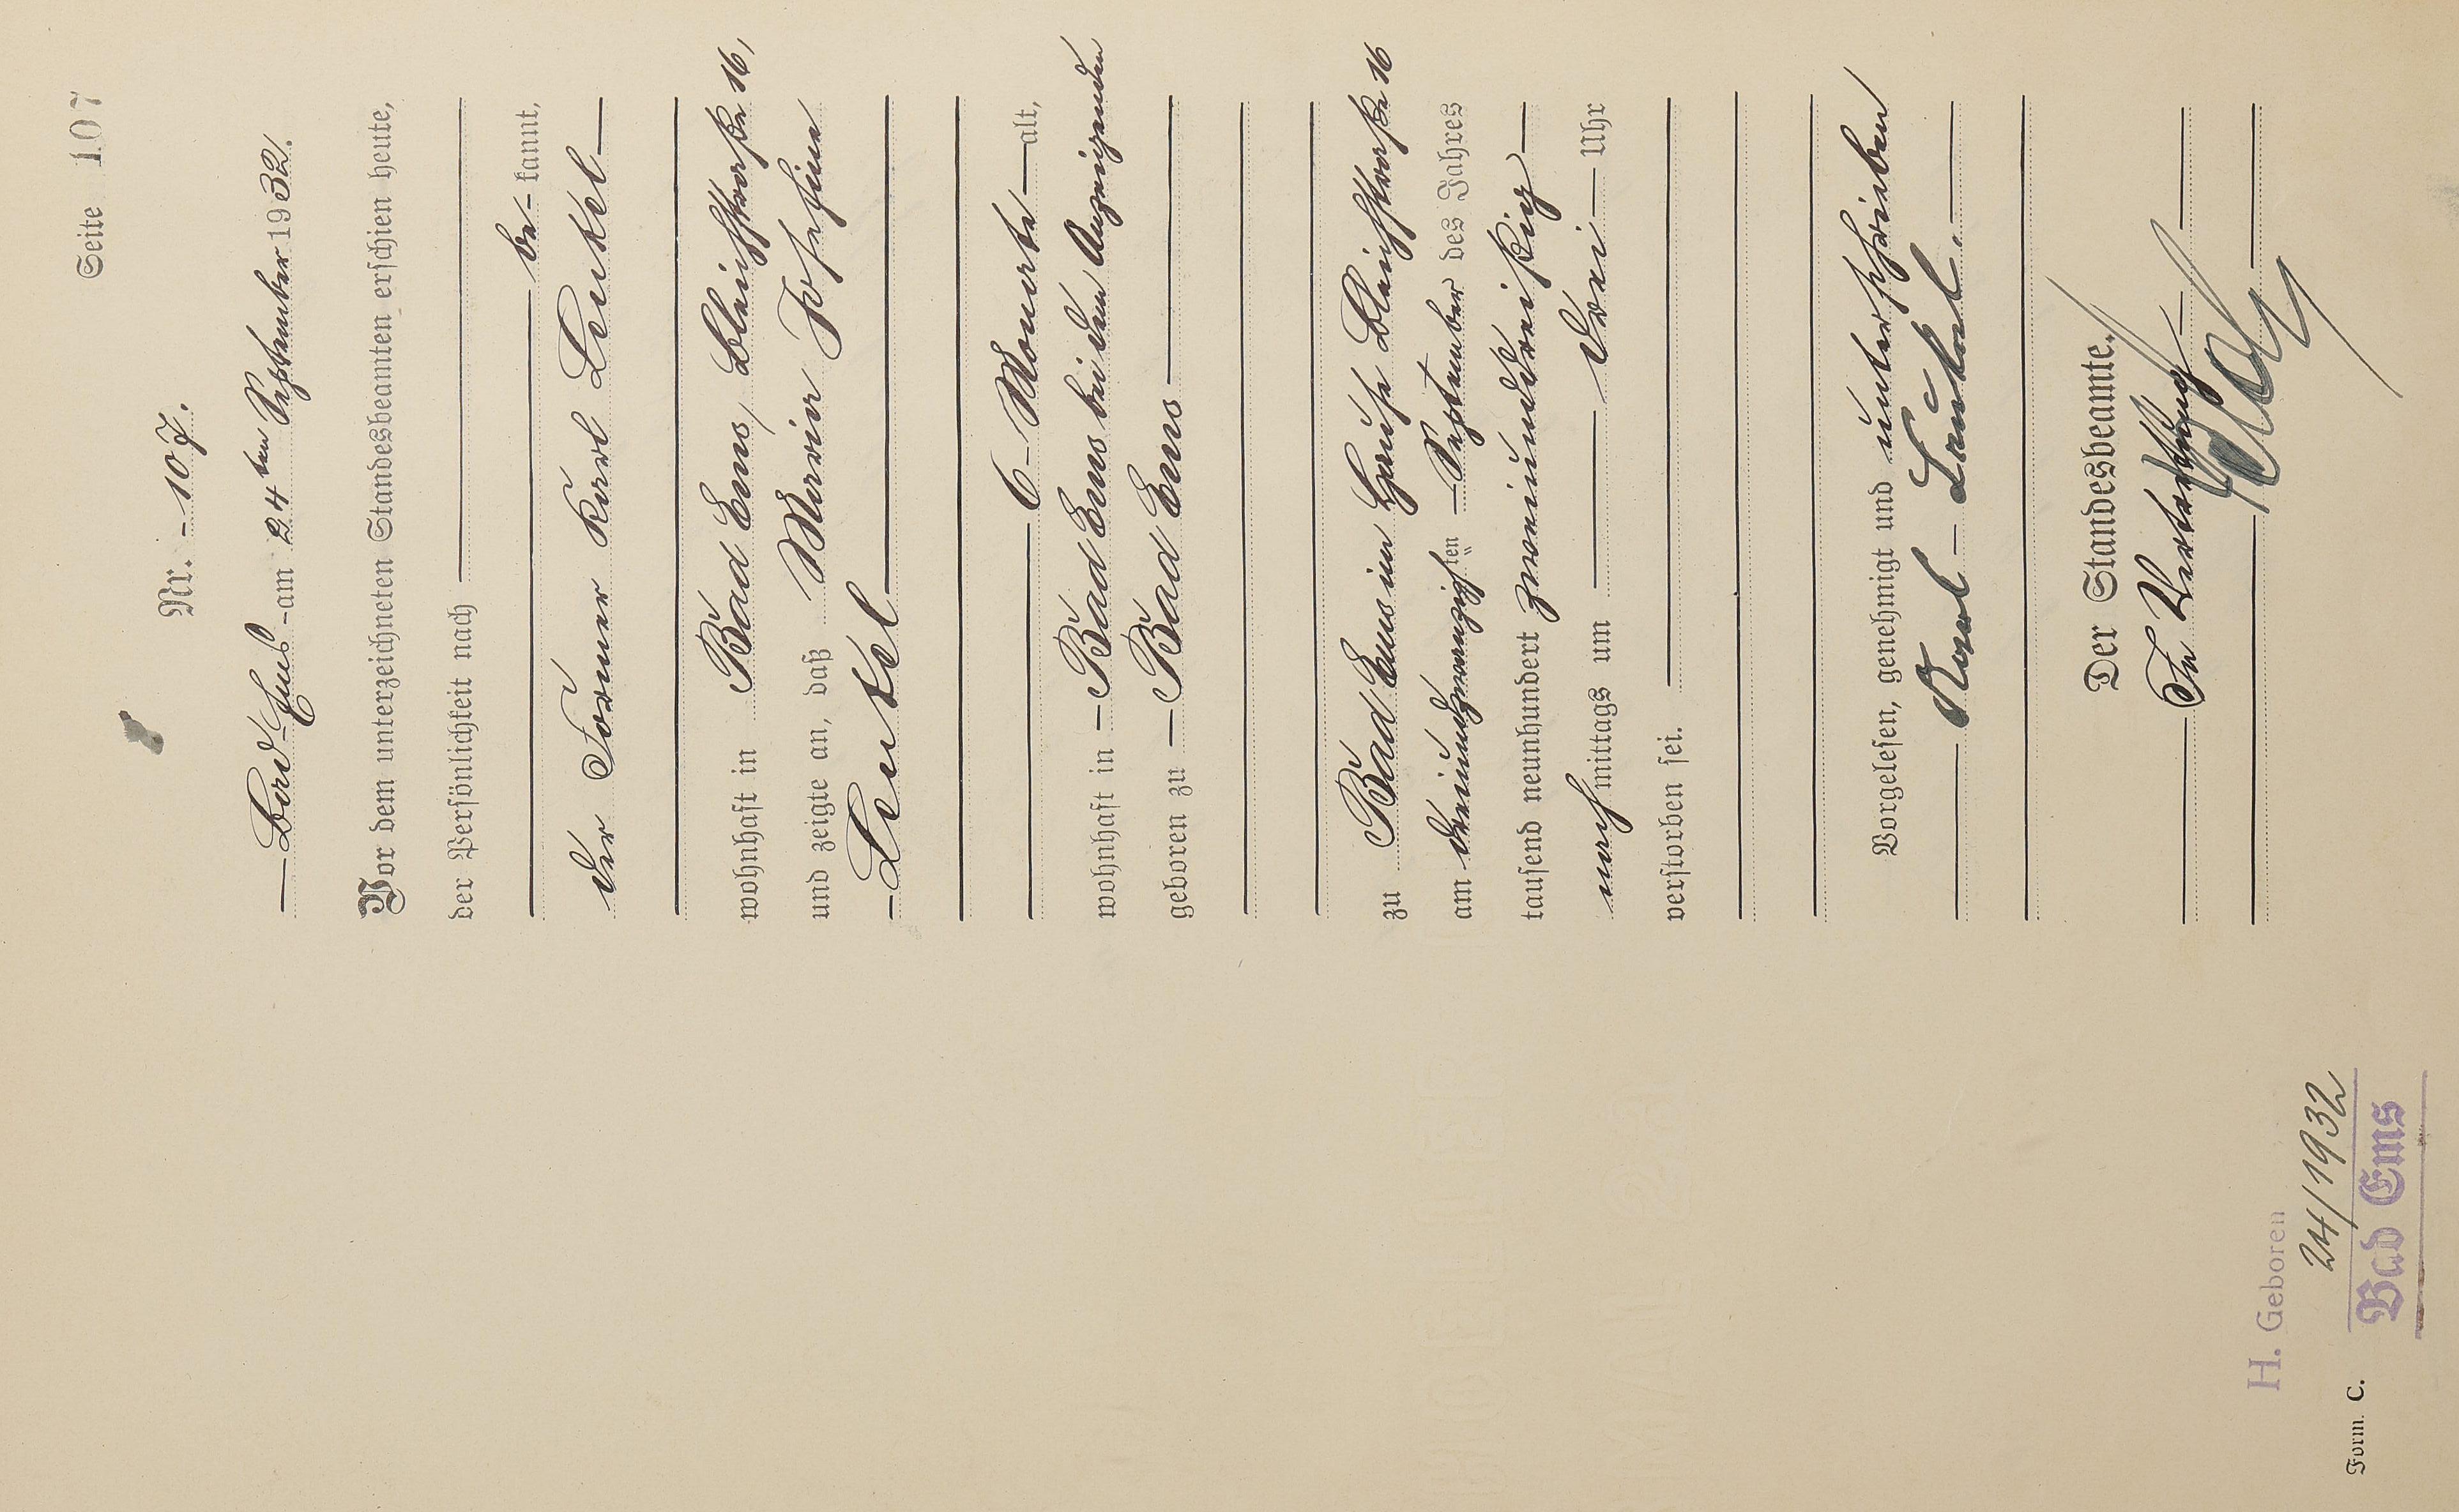 Seite 107
Nr. 107.
Bad-Ems am 24ten September 1932.
Vor dem unterzeichneten Standesbeamten erschien heute,
der Persönlichkeit nach
be-kannt,
der Former Karl Leukel
wohnhaft in Bad Ems, Bleichstraße 16,
und zeigte an, daß Maria Josefine
Leukel
6 Monate alt,
wohnhaft in Bad Ems bei dem Anzeigenden
geboren zu Bad Ems
zu Bad Ems im Hause Bleichstraße 16
am dreiundzwanzigsten September des Jahres
tausend neunhundert zweiunddreißig
nachmittags um drei Uhr
verstorben sei.
Vorgelesen, genehmigt und unterschrieben
Karl Leukel.
Der Standesbeamte.
In Vertretung
H. Geboren
24/1932
Bad Ems
Form. C.